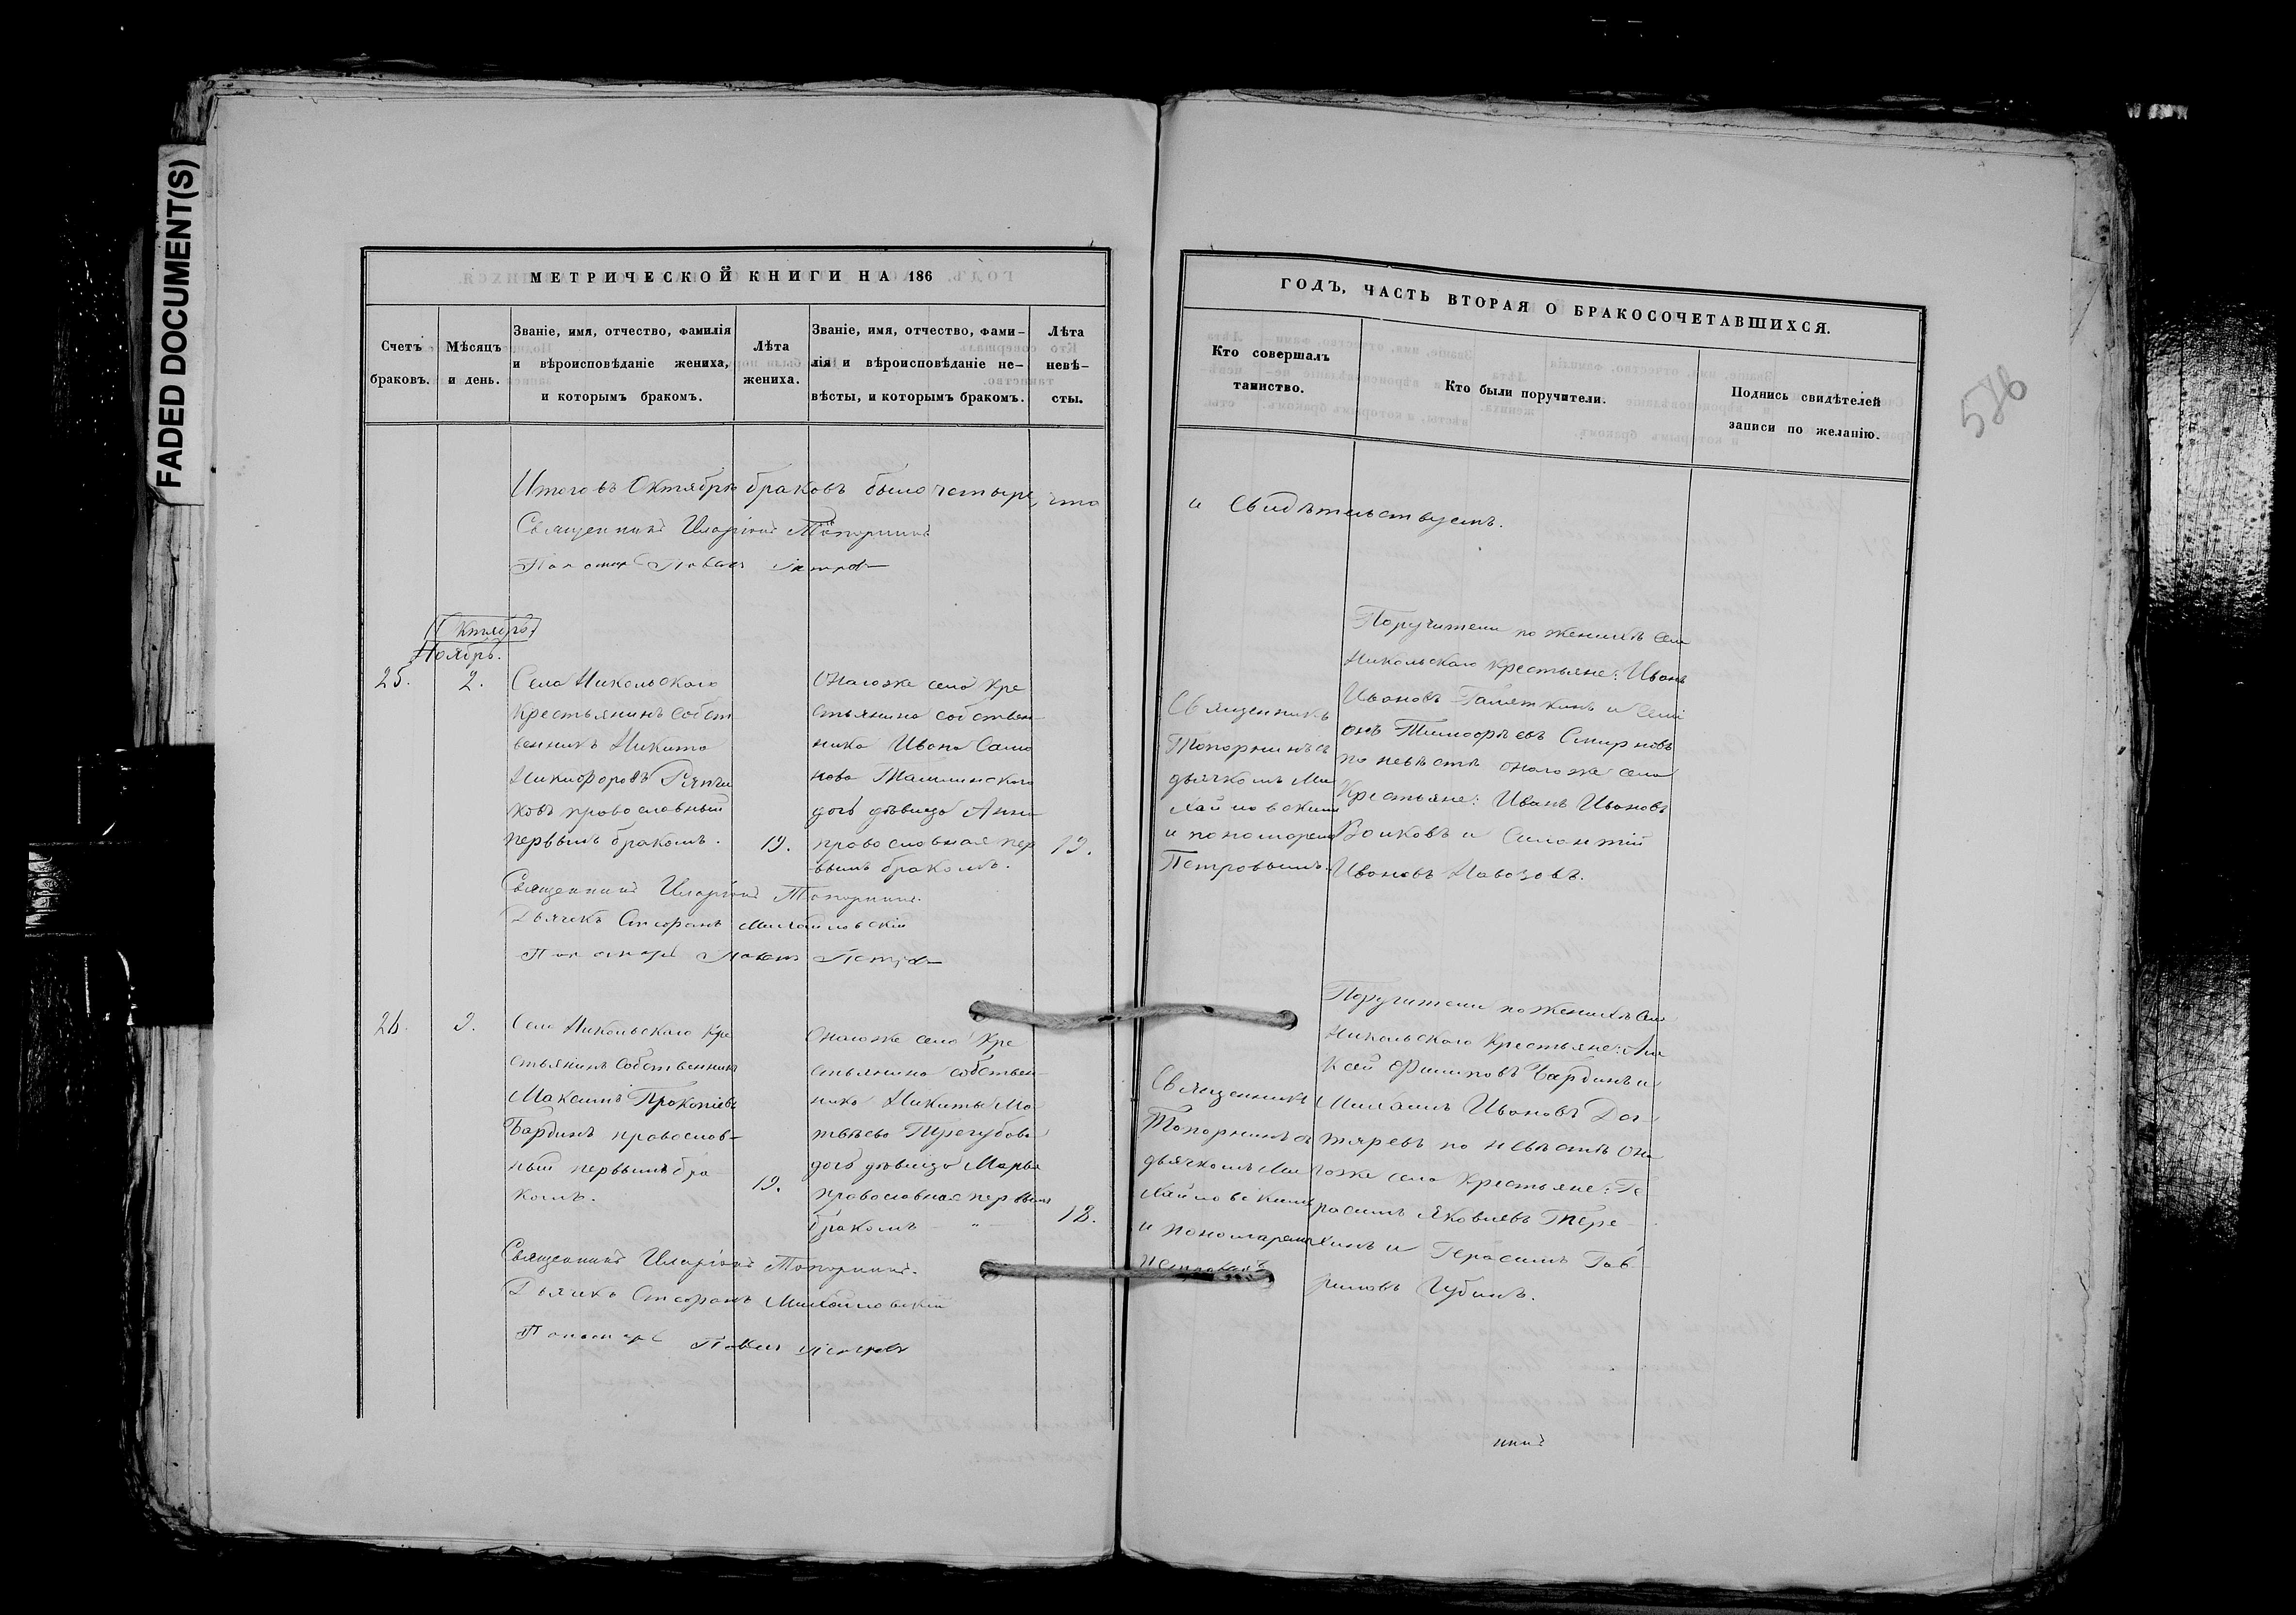 FADED DOCUMENT(S)
МЕТРИЧЕСКОЙ КНИГИ НА 186
Счетъ браковъ.
Мѣсяцъ и день.
Званіе, имя, отчество, фамилія
и вѣроисповѣданіе жениха,
и которымъ бракомъ.
Лѣта
жениха.
Званіе, имя, отчество, фами-
лія и вѣроисповѣданіе не-
вѣсты, и которымъ бракомъ.
Лѣта
невѣ-
сты.
Итого въ Октябрѣ браковъ было четыре, что
Священникъ Иларіонъ Топорнинъ
Пономарь Павелъ Петровъ
Ноябрь.
25.
2.
Села Никольскаго
крестьянинъ собст
венникъ Никита
Никифоровъ
православный
первымъ бракомъ.
19.
Онагоже села Кре
стьянина собствен-
ника Ивана
дочь дѣвица Анна
православная пер
вымъ бракомъ.
19.
Священникъ Иларіонъ Топорнинъ.
Дьячекъ Стефанъ Михайловскій
Пономарь Павелъ Петровъ
26.
9.
Села Никольскаго Кре
стьянинъ Собственникъ
Максимъ Прокопіевъ
Бардинъ православ-
ный первымъ бра
комъ.
19.
Онагоже села Кре
стьянина собствен-
ника Никиты Ма
твѣева
дочь дѣвица Марья
православная первымъ
бракомъ — " —
18.
Священникъ Иларіонъ Топорнинъ.
Дьячекъ Стефанъ Михайловскій
Пономарь Павелъ Петровъ
ГОДЪ, ЧАСТЬ ВТОРАЯ О БРАКОСОЧЕТАВШИХСЯ.
Кто совершалъ
таинство.
Кто были поручители.
Подпись свидѣтелей
записи по желанію.
586
и Свидѣтельствуемъ.
Священникъ
Топорнинъ съ
дьячкомъ Ми
хайловскимъ
и пономаремъ
Петровымъ.
Поручители по женихѣ села
Никольскаго крестьяне: Иванъ
Ивановъ и Семі
онъ Тимофѣевъ Смирновъ
по невѣстѣ онагоже села
Крестьяне: Иванъ Ивановъ
Волковъ и
Ивановъ Навозовъ.
Священникъ
Топорнинъ съ
дьячкомъ Ми
хайловскимъ
и пономаремъ
Петровымъ
Поручители по женихѣ села
Никольскаго Крестьяне: Але
ксѣй Филиповъ Бардинъ и
Михаилъ Ивановъ Дег-
тяревъ по невѣстѣ она
гоже села Крестьяне: Ге
расимъ Яковлевъ Тере-
хинъ и Герасимъ Гав-
риловъ Губинъ.